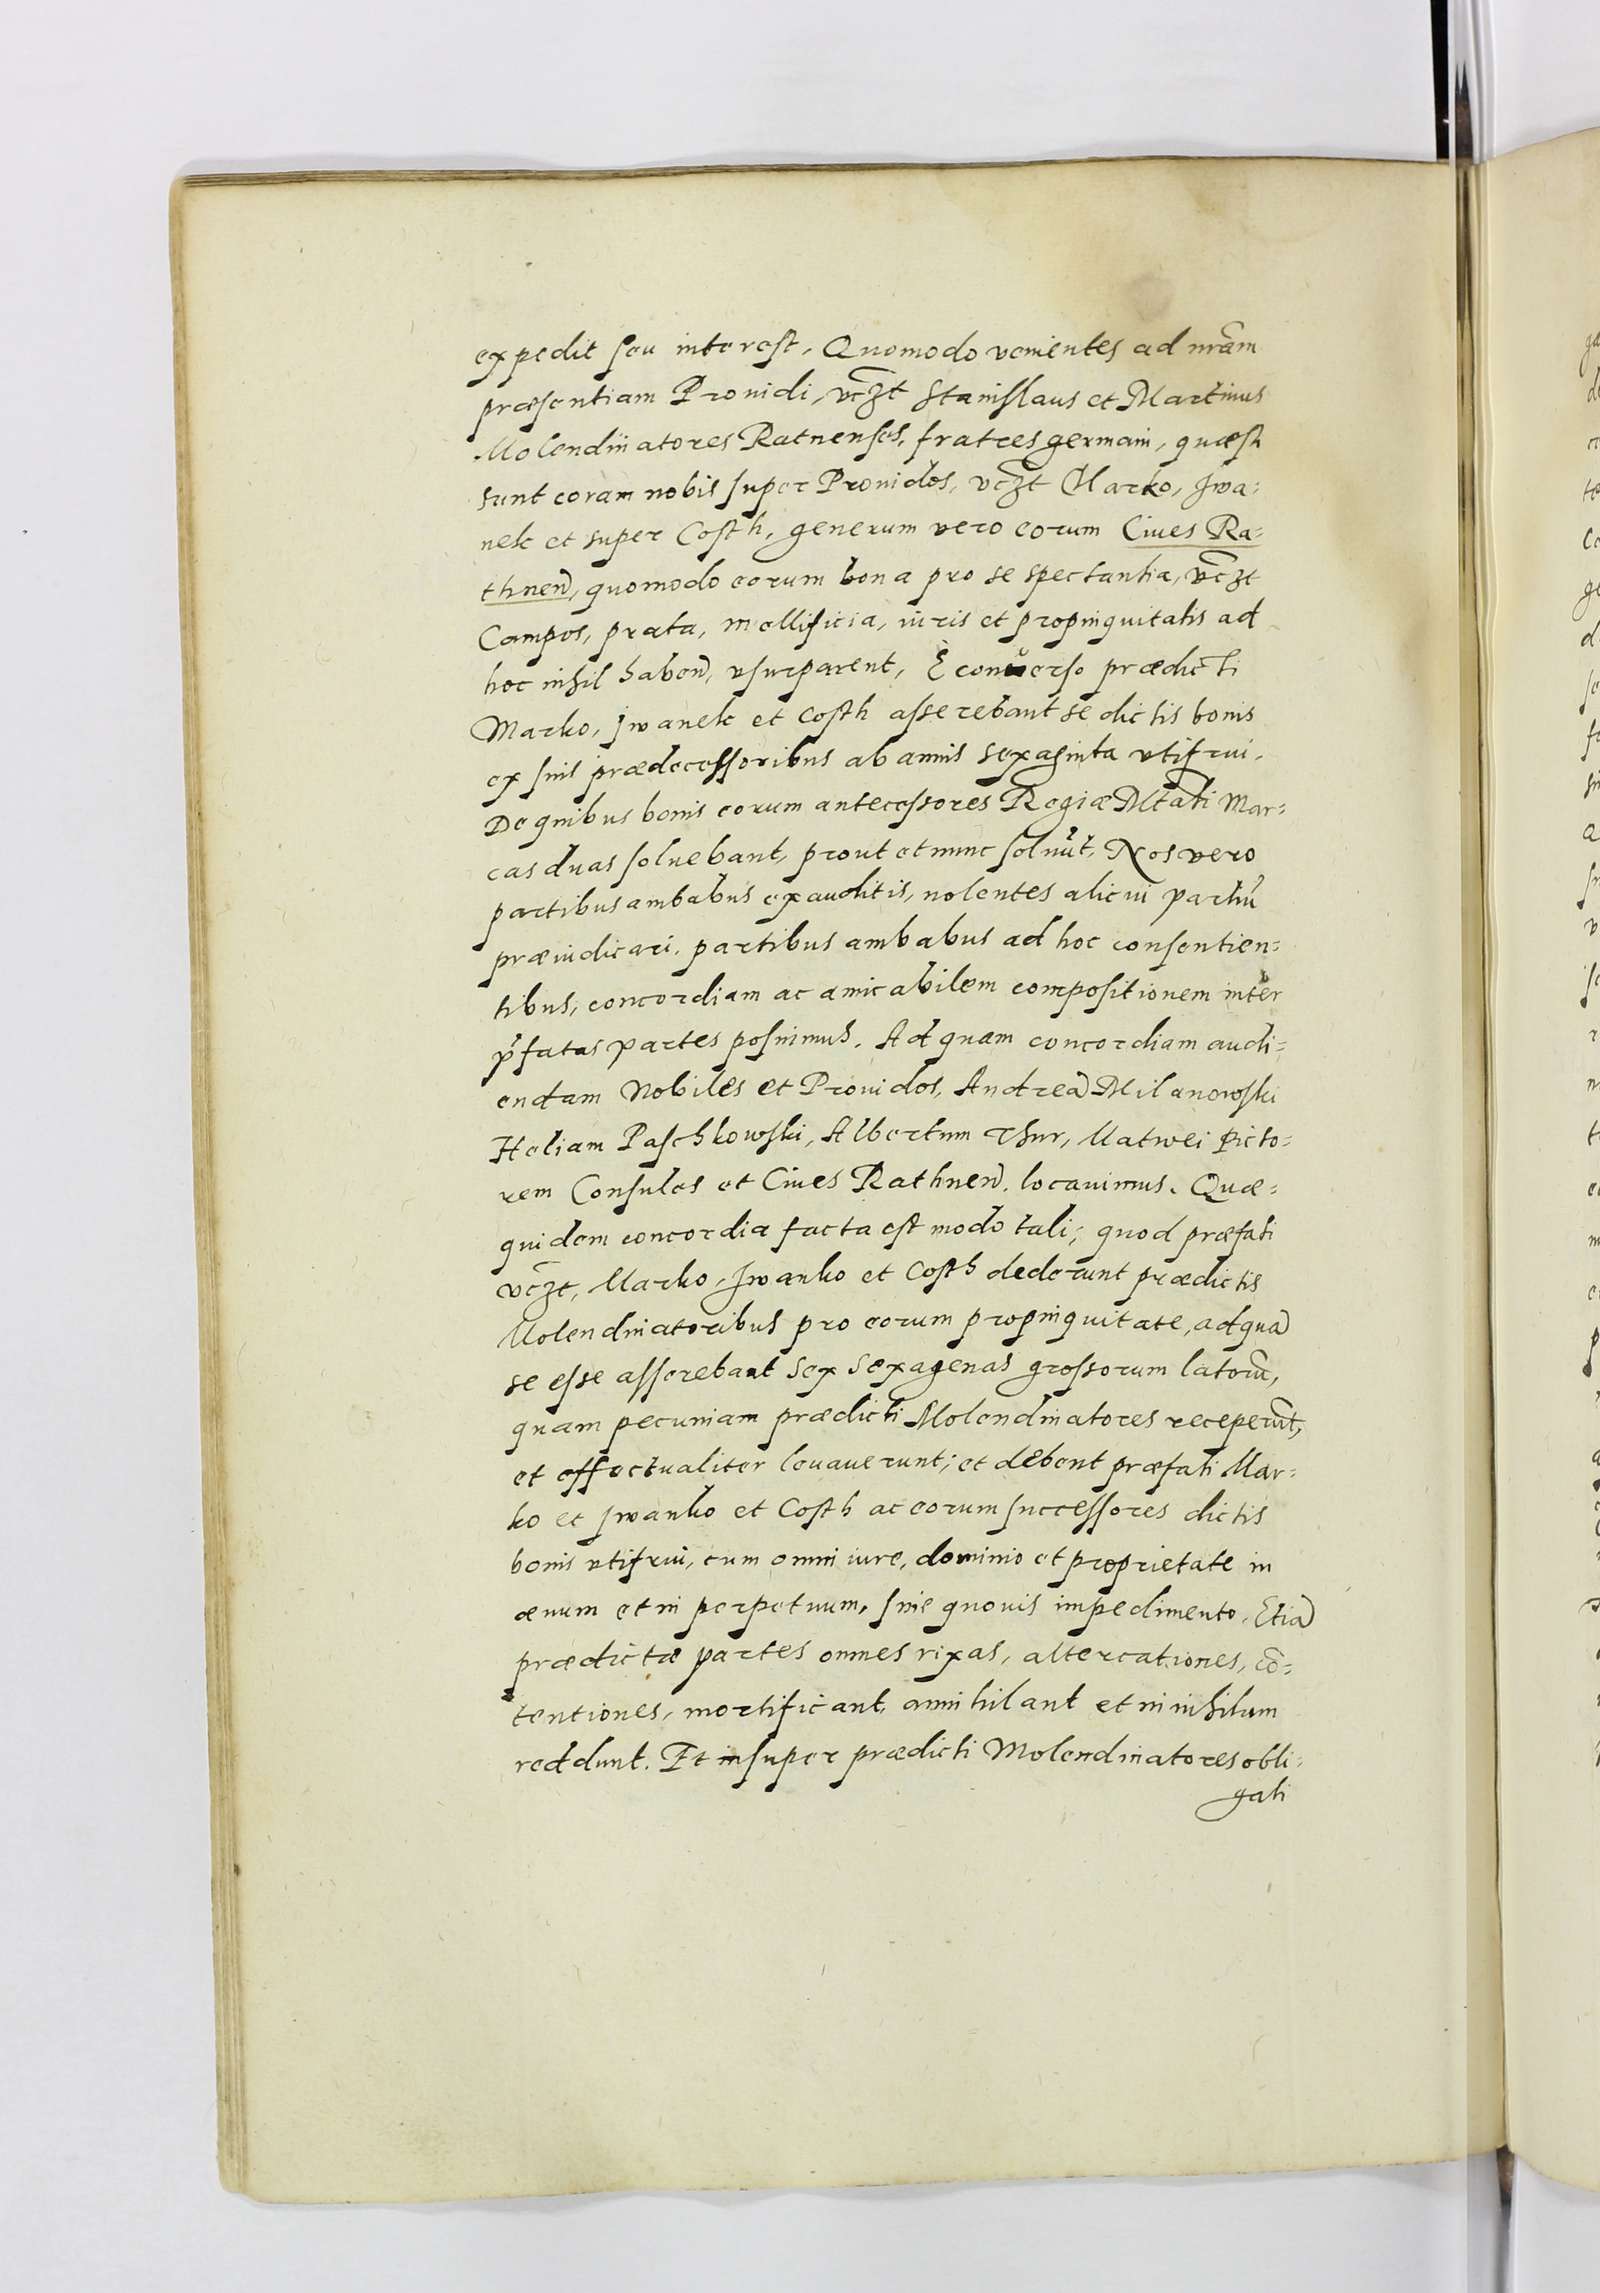 expedit seu interest, Quomodo venientes ad nrãm
præsentiam Prouidi, vcz̃t Stanislaus et Martinus
Molendinatores Ratnenses, fratres germani, quæsti
sunt coram nobis super Prouidos, vcz̃t Marko, Iwa=
nek et super Costh, generum vero eorum Ciues Ra=
thneñ, quomodo eorum bona pro se spectantia, vcz̃t
Campos, prata, mellificia, iuris et propinquitatis ad
hoc nihil habeñ, vsurparent, E conuerso prædicti
Marko, Iwanek et Costh asserebant se dictis bonis
ex suis prædecessoribus ab annis sexaginta vtifrui.
De quibus bonis eorum antecessores Regiæ Mtãti Mar=
cas duas soluebant, prout et nunc soluũt, Nos vero
partibus ambabus exauditis, nolentes alicui partiũ
præiudicari, partibus ambabus ad hoc consentien=
tibus, concordiam ac amicabilem compositionem inter
p̃fatas partes posuimus. Ad quam concordiam audi=
endam Nobiles et Prouidos, Andreã Milanowski
Heliam Paschkowski, Albertum Thur, Matwei Picto=
rem Consules et Ciues Rathneñ. locauimus. Quæ=
quidem concordia facta est modo tali; quod præfati
vcz̃t, Marko, Iwanko et Costh dederunt prædictis
Molendinatoribus pro eorum propinquitate, ad quã
se esse asserebant sex sexagenas grossorum latorũ,
quam pecuniam prædicti Molendinatores receperũt,
et effectualiter leuauerunt; et debent præfati Mar=
ko et Iwanko et Costh ac eorum successores dictis
bonis vtifrui, cum omni iure, dominio et proprietate in
æuum et in perpetuum, sine quouis impedimento. Etiã
prædictæ partes omnes rixas, altercationes, cõ=
tentiones, mortificant, annihilant et in nihilum
reddunt. Et insuper prædicti Molendinatores obli=
gati